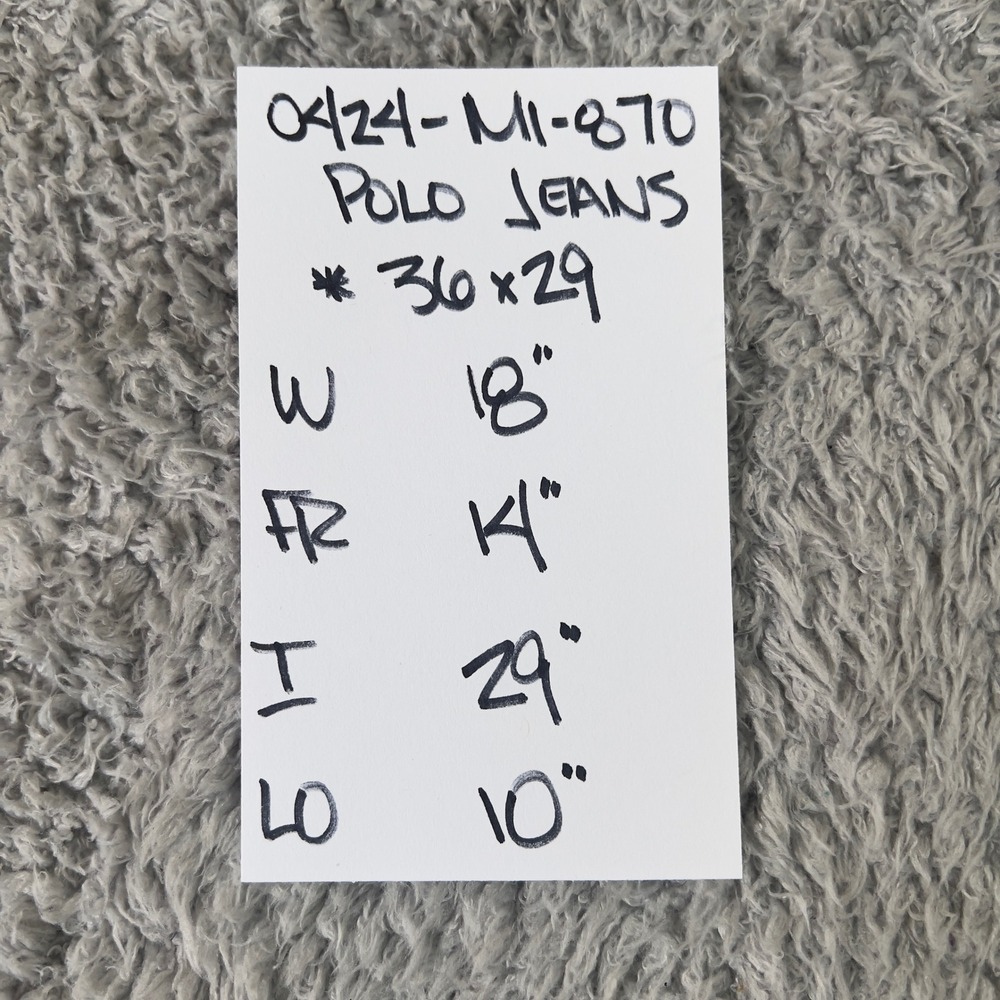 0424-M11-870
POLO JEANS
* 36x29
W 18"
FR 14"
I 29"
LO 10"